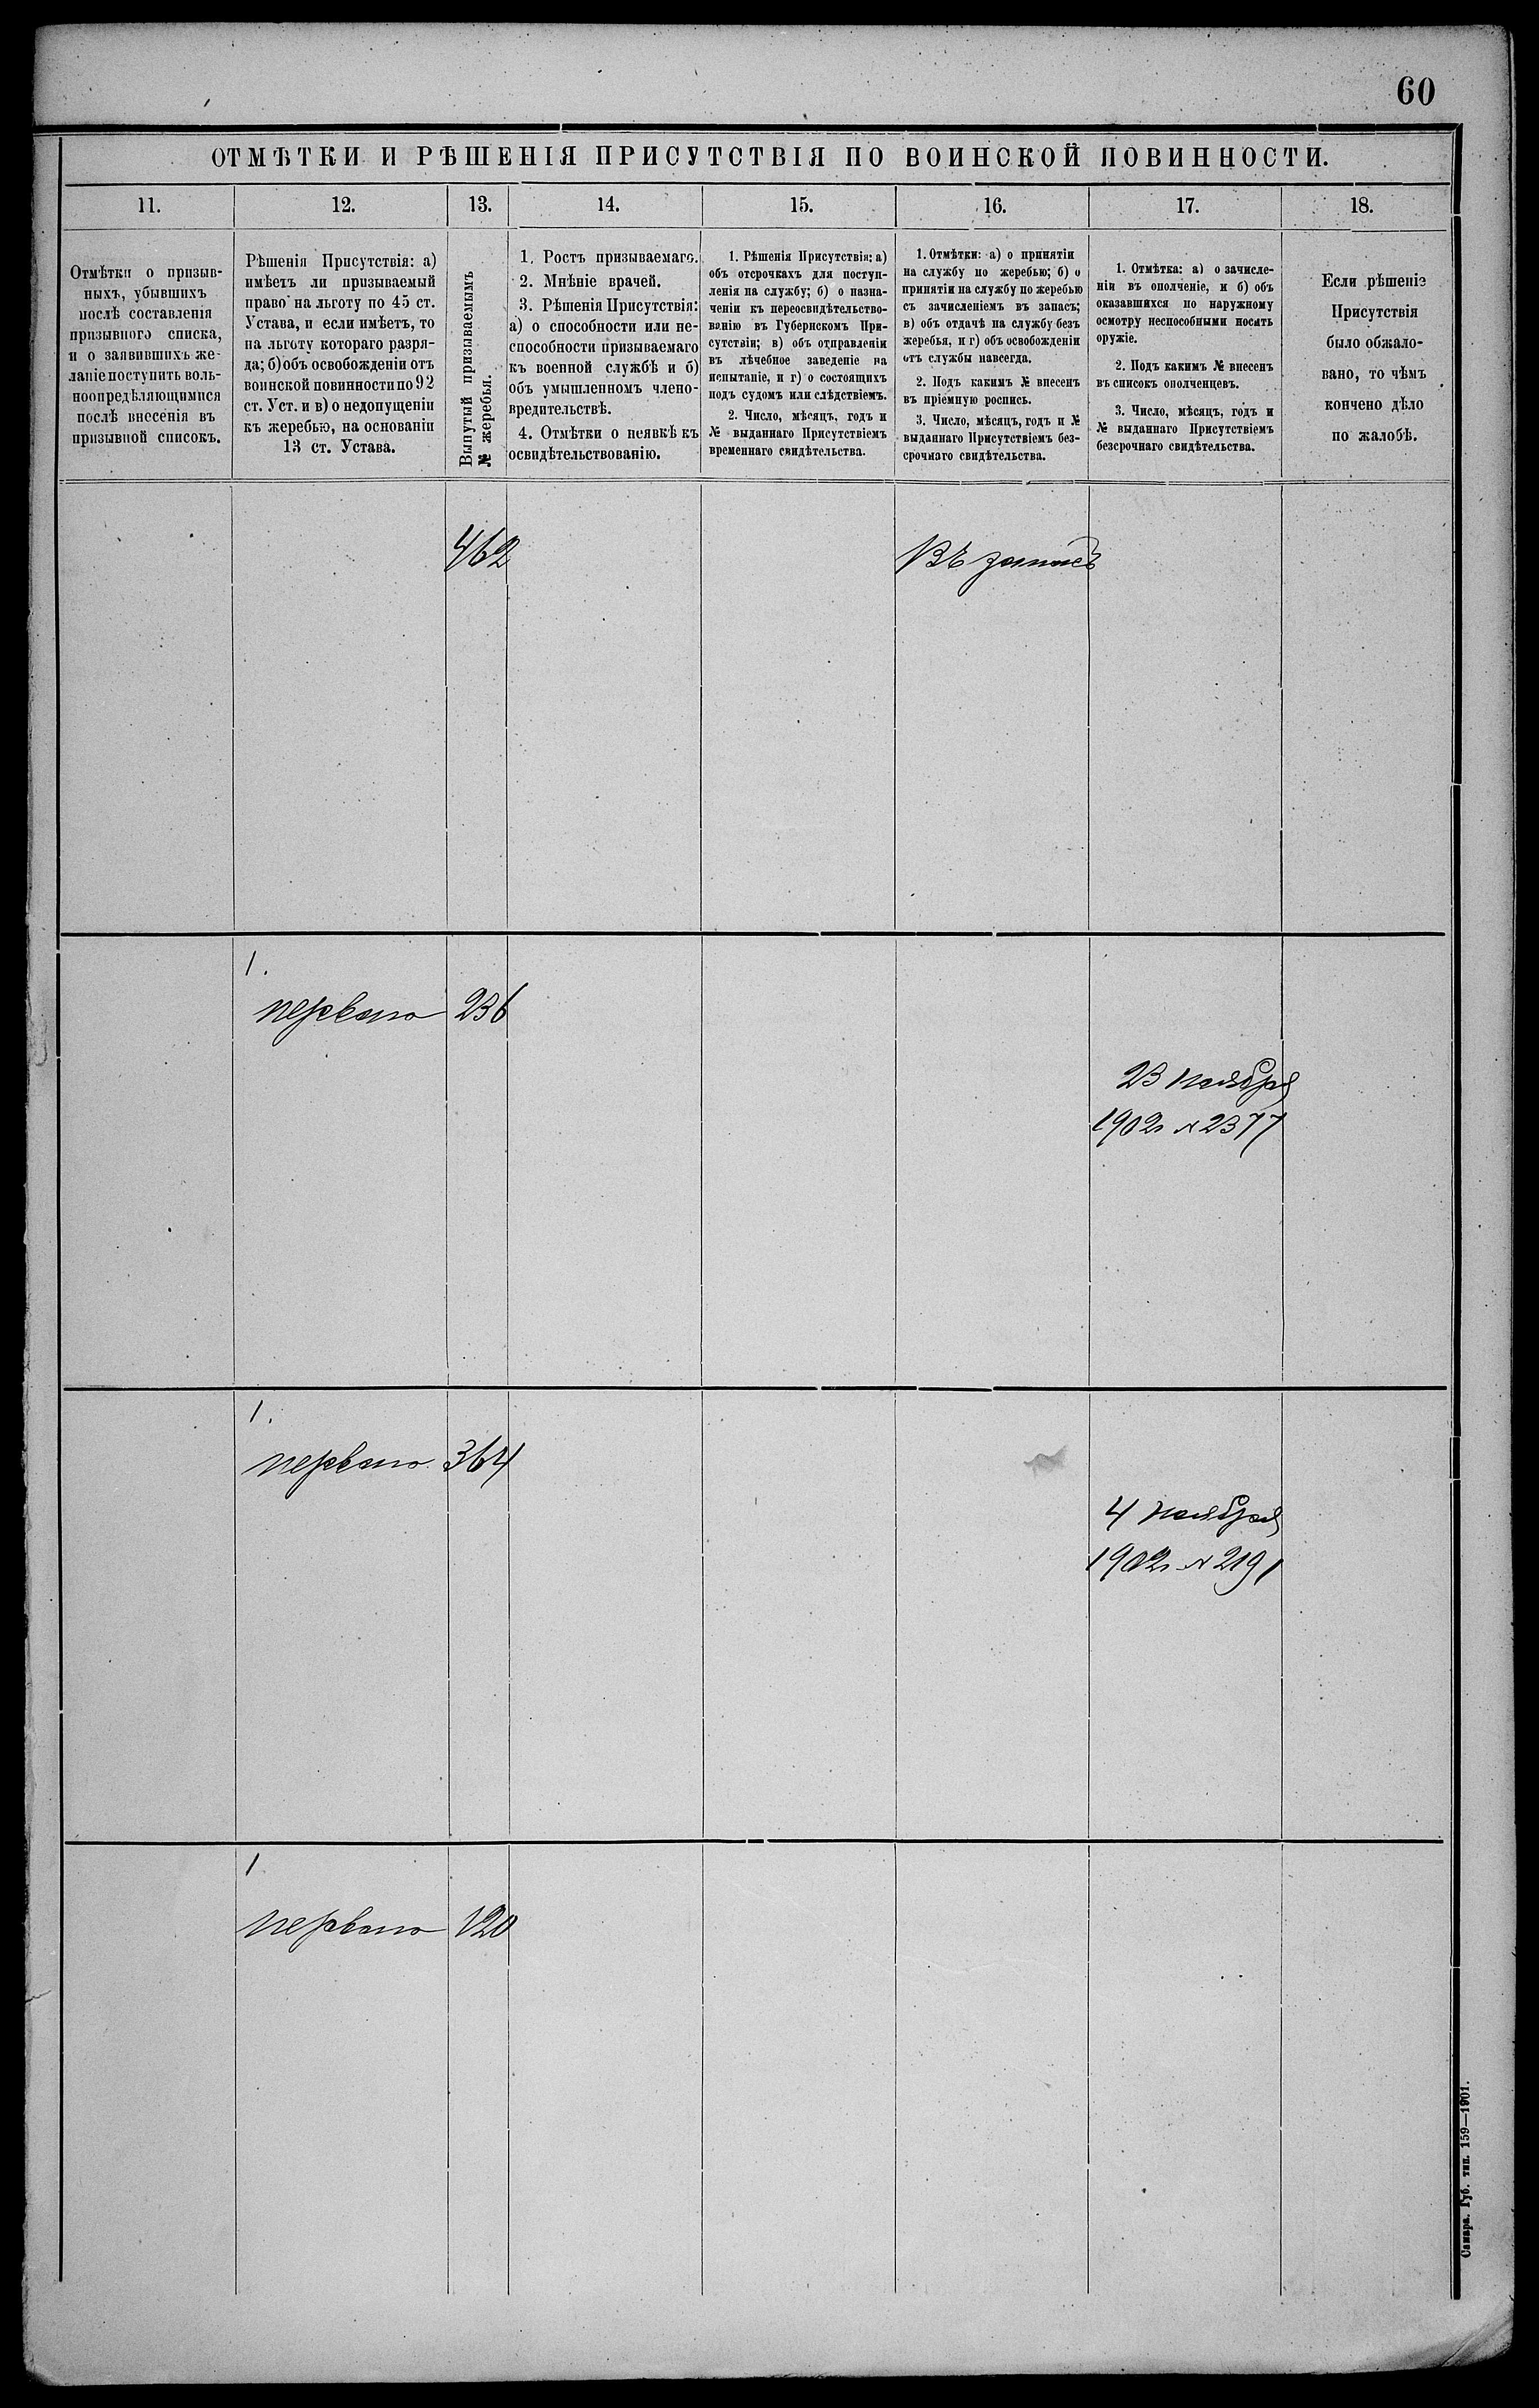 60
ОТМѢТКИ И РѢШЕНІЯ ПРИСУТСТВІЯ ПО ВОИНСКОЙ ПОВИННОСТИ.
11.
12.
13.
14.
15.
16.
17.
18.
Отмѣтки о призыв-
ныхъ, убывшихъ
послѣ составленія
призывного списка,
и о заявившихъ же-
ланіе поступить воль-
ноопредѣляющимися
послѣ внесенія въ
призывной списокъ.
Рѣшенія Присутствія: а)
имѣетъ ли призываемый
право на льготу по 45 ст.
Устава, и если имѣетъ, то
на льготу котораго разря-
да; б) объ освобожденіи отъ
воинской повинности по 92
ст. Уст. и в) о недопущеніи
къ жеребью, на основаніи
13 ст. Устава.
Вынутый призываемымъ
№ жеребья.
1. Ростъ призываемаго.
2. Мнѣніе врачей.
3. Рѣшенія Присутствія:
а) о способности или не-
способности призываемаго
къ военной службѣ и б)
объ умышленномъ члено-
вредительствѣ.
4. Отмѣтки о неявкѣ къ
освидѣтельствованію.
1. Рѣшенія Присутствія: а)
объ отсрочкахъ для поступ-
ленія на службу; б) о назна-
ченіи къ переосвидѣтельство-
ванію въ Губернскомъ При-
сутствіи; в) объ отправленіи
въ лѣчебное заведеніе на
испытаніе, и г) о состоящихъ
подъ судомъ или слѣдствіемъ.
2. Число, мѣсяцъ, годъ и
№ выданнаго Присутствіемъ
временнаго свидѣтельства.
1. Отмѣтки: а) о принятіи
на службу по жеребью; б) о
принятіи на службу по жеребью
съ зачисленіемъ въ запасъ;
в) объ отдачѣ на службу безъ
жеребья, и г) объ освобожденіи
отъ службы навсегда.
2. Подъ какимъ № внесенъ
въ пріемную роспись.
3. Число, мѣсяцъ, годъ и №
выданнаго Присутствіемъ без-
срочнаго свидѣтельства.
1. Отмѣтка: а) о зачисле-
ніи въ ополченіе, и б) объ
оказавшихся по наружному
осмотру неспособными носить
оружіе.
2. Подъ какимъ № внесенъ
въ списокъ ополченцевъ.
3. Число, мѣсяцъ, годъ и
№ выданнаго Присутствіемъ
безсрочнаго свидѣтельства.
Если рѣшеніе
Присутствія
было обжало-
вано, то чѣмъ
кончено дѣло
по жалобѣ.
462
Въ запасъ
1.
перваго 236
23 ноября
1902 г № 2377
1.
перваго 364
4 ноября
1902 г № 2191
1
перваго 120
Самара. Губ. тип. 159—1901.